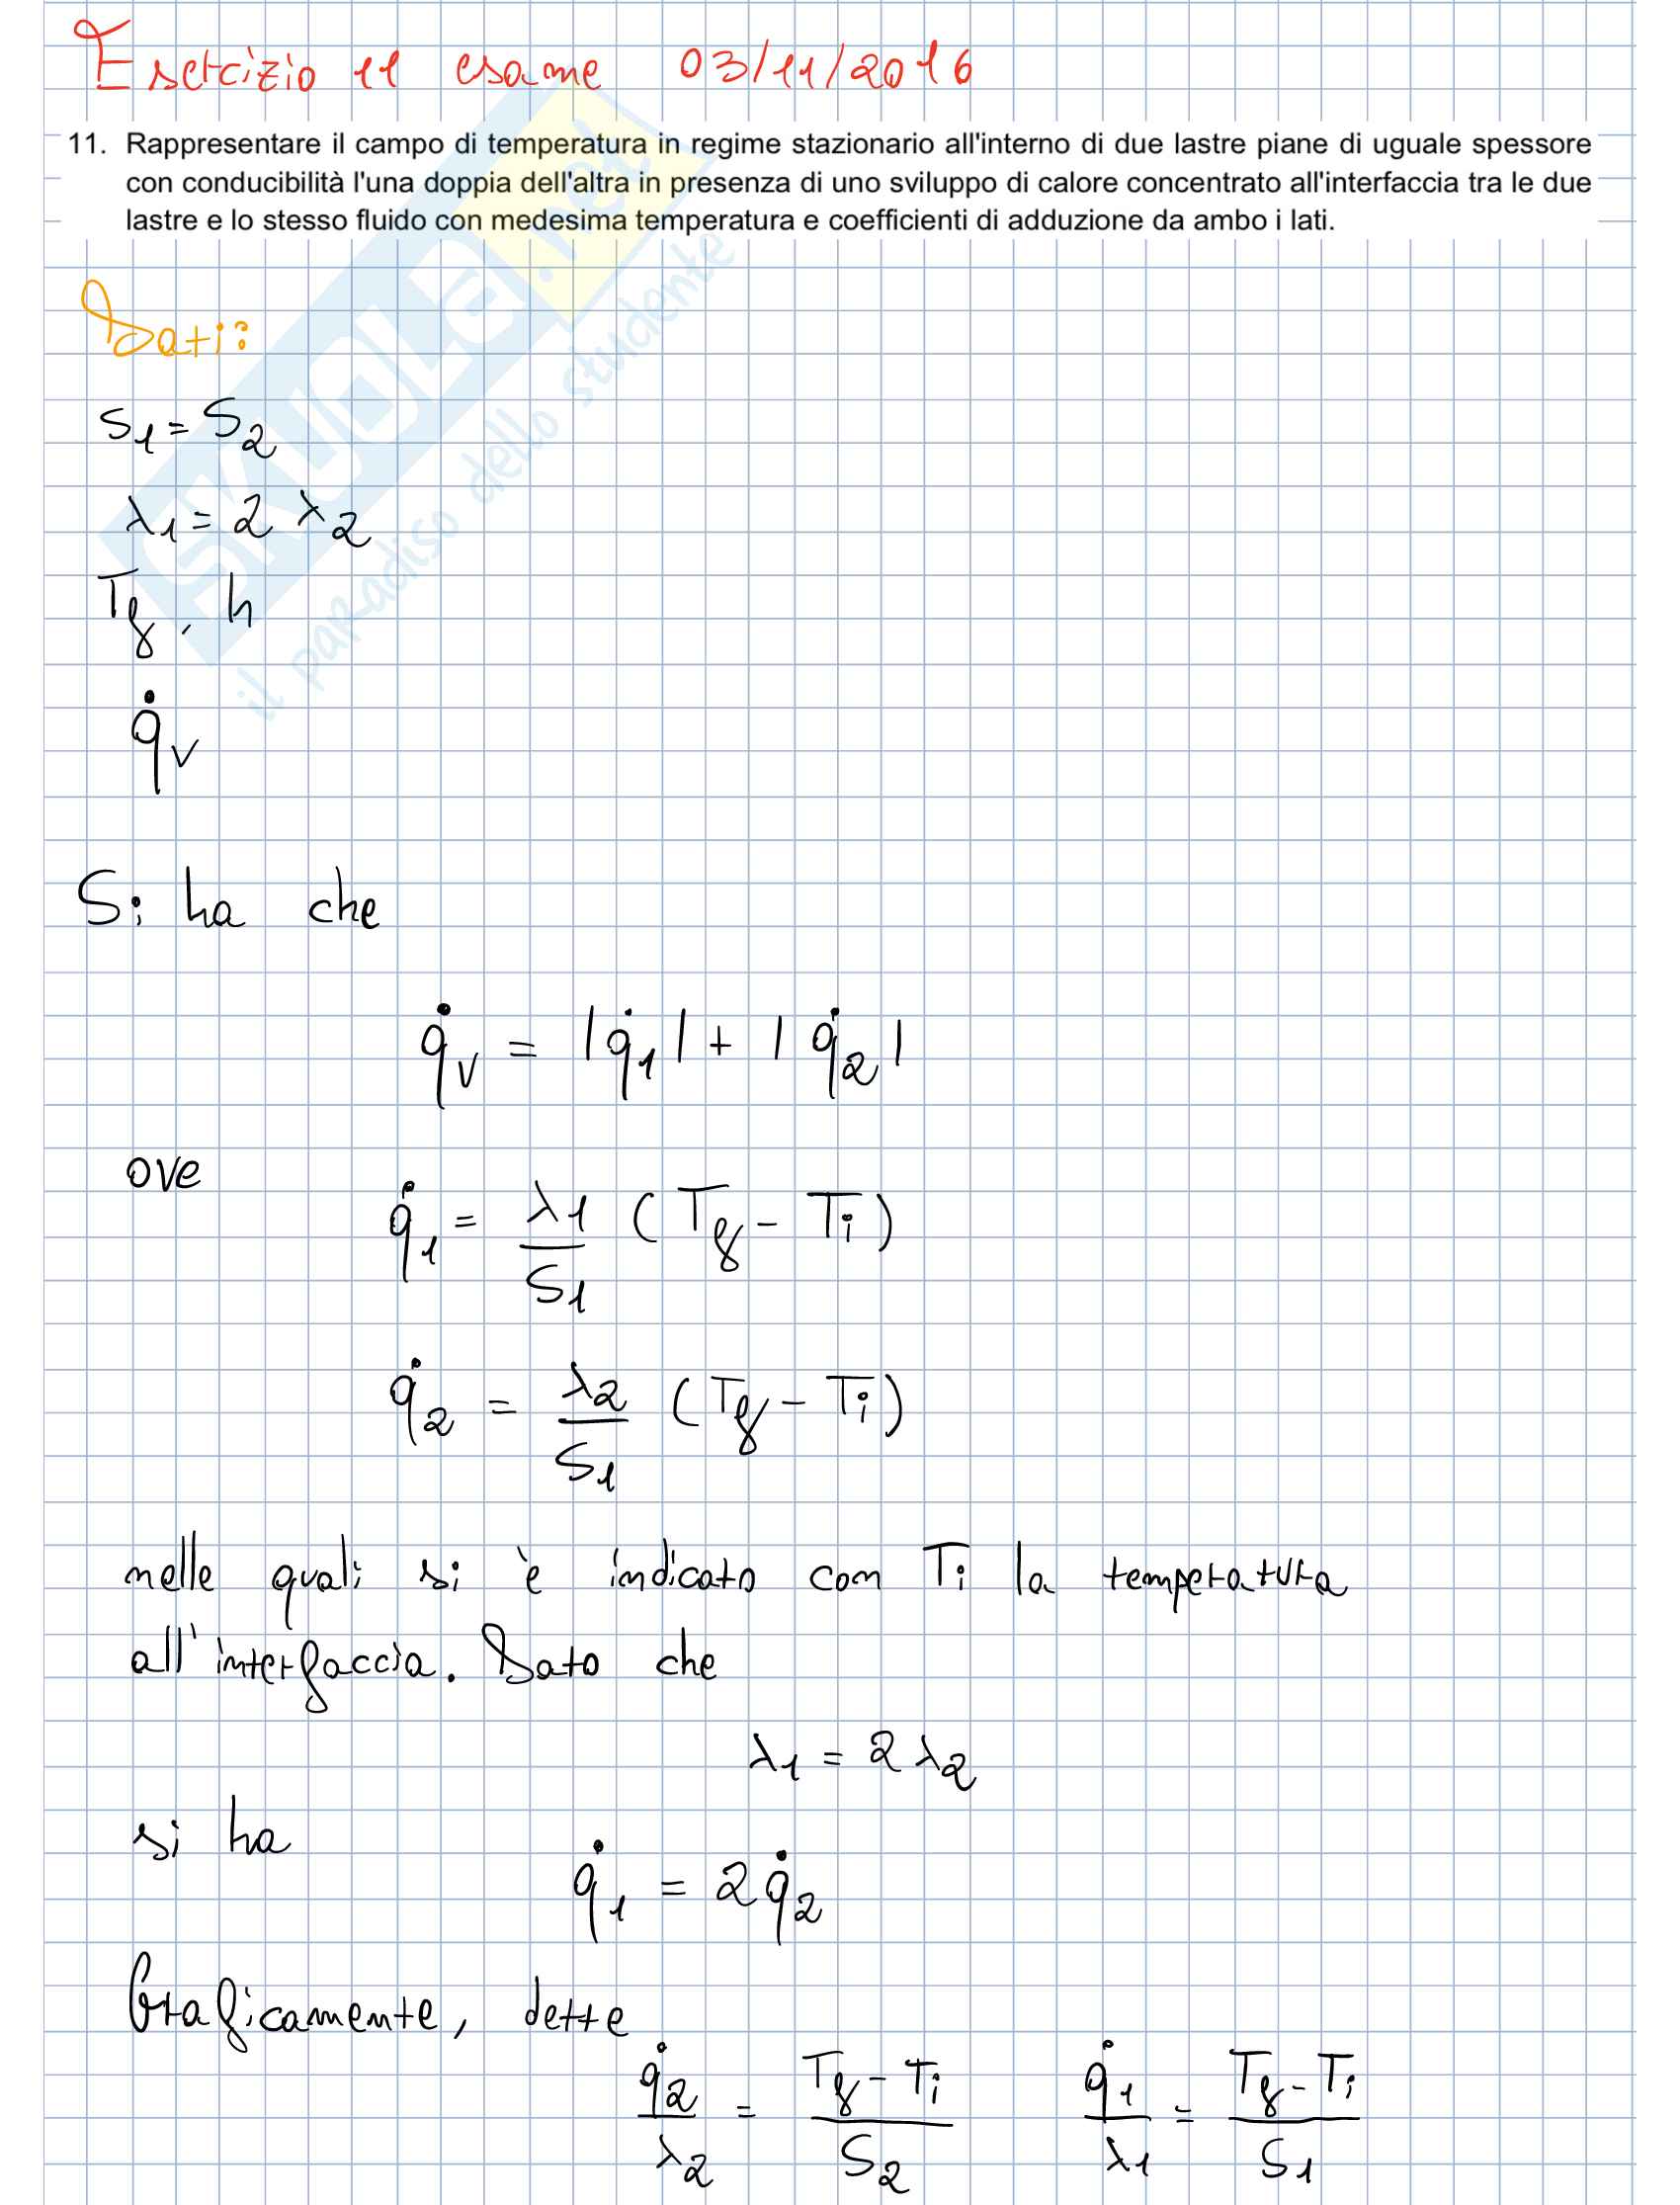 Esercizio 11 esame 03/11/2016
11. Rappresentare il campo di temperatura in regime stazionario all'interno di due lastre piane di uguale spessore
con conducibilità l'una doppia dell'altra in presenza di uno sviluppo di calore concentrato all'interfaccia tra le due
lastre e lo stesso fluido con medesima temperatura e coefficienti di adduzione da ambo i lati.
SKUOLA.net
il paradiso dello studente
Dati:
S₁ = S₂
λ₁ = 2 λ₂
T_f, h
q̇_v
Si ha che
q̇_v = |q̇₁| + |q̇₂|
ove
q̇₁ = λ₁/S₁ (T_f - T_i)
q̇₂ = λ₂/S₁ (T_f - T_i)
nelle quali si è indicato con Ti la temperatura
all'interfaccia. Dato che
λ₁ = 2 λ₂
si ha
q̇₁ = 2 q̇₂
Graficamente, dette
q̇₂/λ₂ = (T_f - T_i)/S₂ q̇₁/λ₁ = (T_f - T_i)/S₁